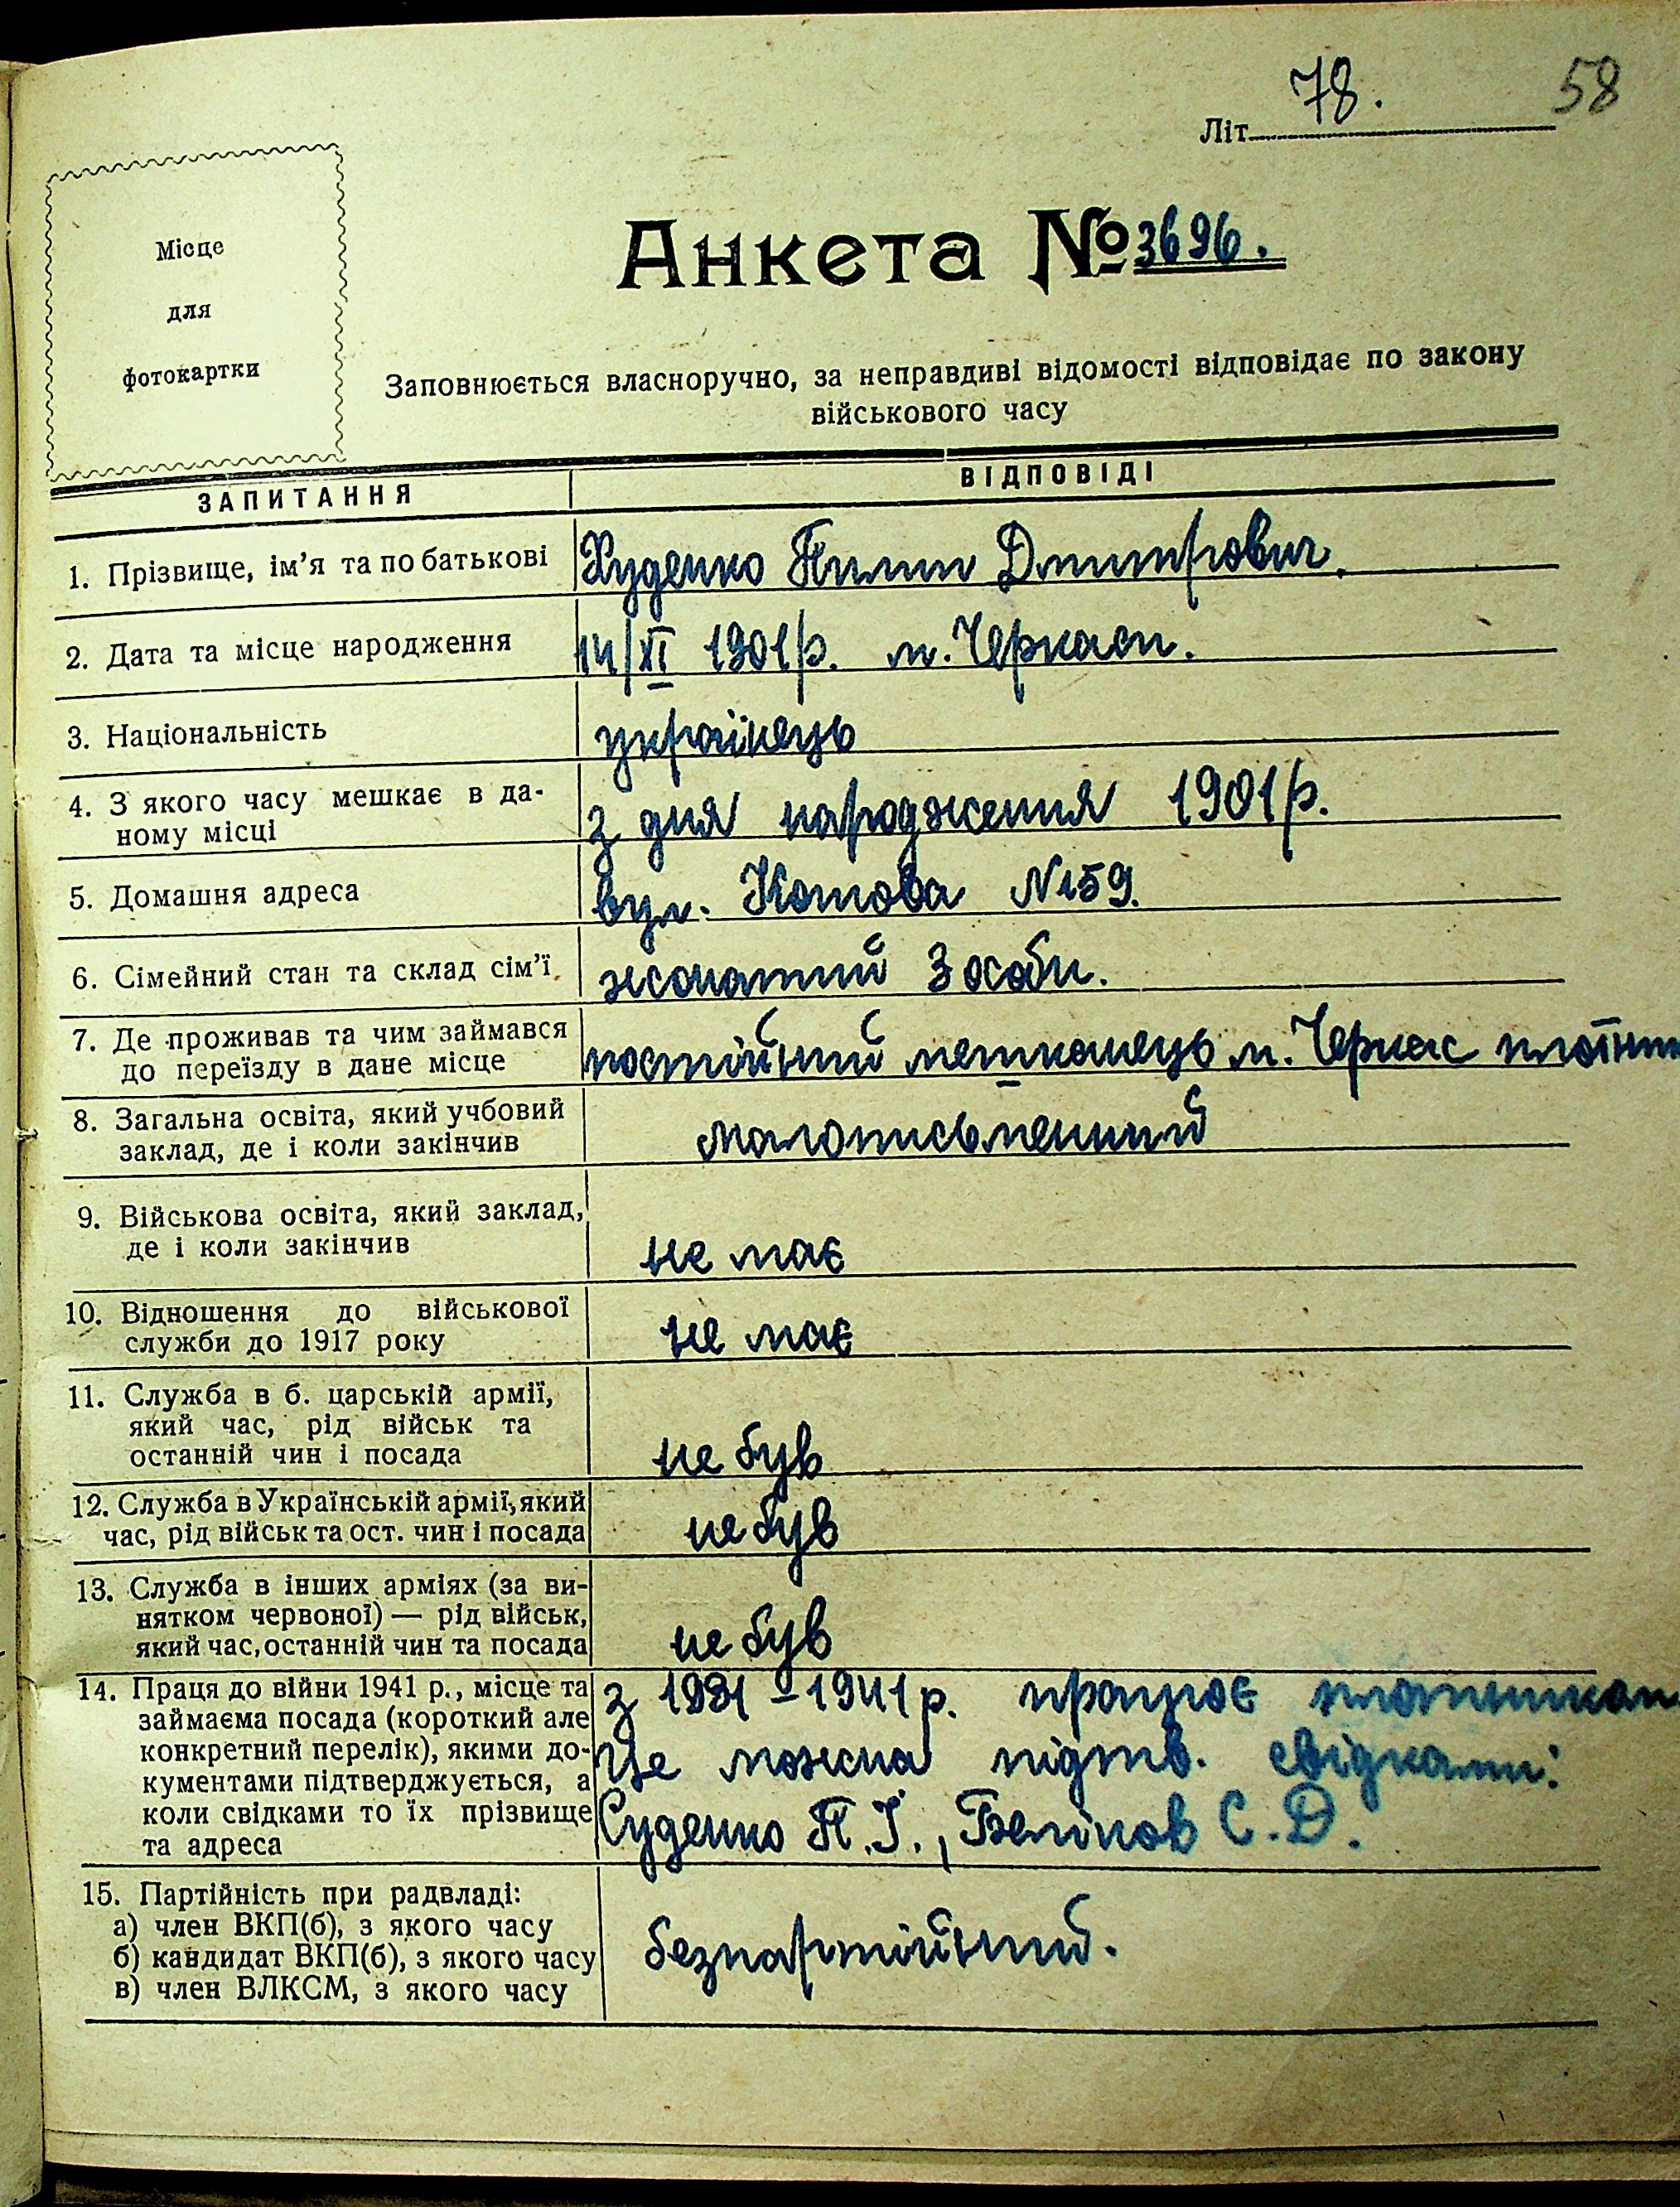 58
Літ. 78.
Місце
для
фотокартки
Анкета № 3696.
Заповнюється власноручно, за неправдиві відомості відповідає по закону
військового часу
ЗАПИТАННЯ ВІДПОВІДІ
1. Прізвище, ім'я та по батькові Худенко Пилип Дмитрович.
2. Дата та місце народження 14/XI 1901р. м. Черкаси.
3. Національність українець
4. З якого часу мешкає в да-
ному місці з дня народження 1901р.
5. Домашня адреса вул. Котова №159.
6. Сімейний стан та склад сім'ї жонатий 3 особи.
7. Де проживав та чим займався
до переїзду в дане місце постійний мешканець м. Черкас
8. Загальна освіта, який учбовий
заклад, де і коли закінчив малописьменний
9. Військова освіта, який заклад,
де і коли закінчив не має
10. Відношення до військової
служби до 1917 року не має
11. Служба в б. царській армії,
який час, рід військ та
останній чин і посада не був
12. Служба в Українській армії, який
час, рід військ та ост. чин і посада не був
13. Служба в інших арміях (за ви-
нятком червоної) — рід військ,
який час, останній чин та посада не був
14. Праця до війни 1941 р., місце та
займаєма посада (короткий але
конкретний перелік), якими до-
кументами підтверджується, а
коли свідками то їх прізвище
та адреса
з 1931 – 1941р. працює
Це можна підтв. свідками:
Суденко П.І., Беліков С.Д.
15. Партійність при радвладі:
а) член ВКП(б), з якого часу
б) кандидат ВКП(б), з якого часу
в) член ВЛКСМ, з якого часу
безпартійний.